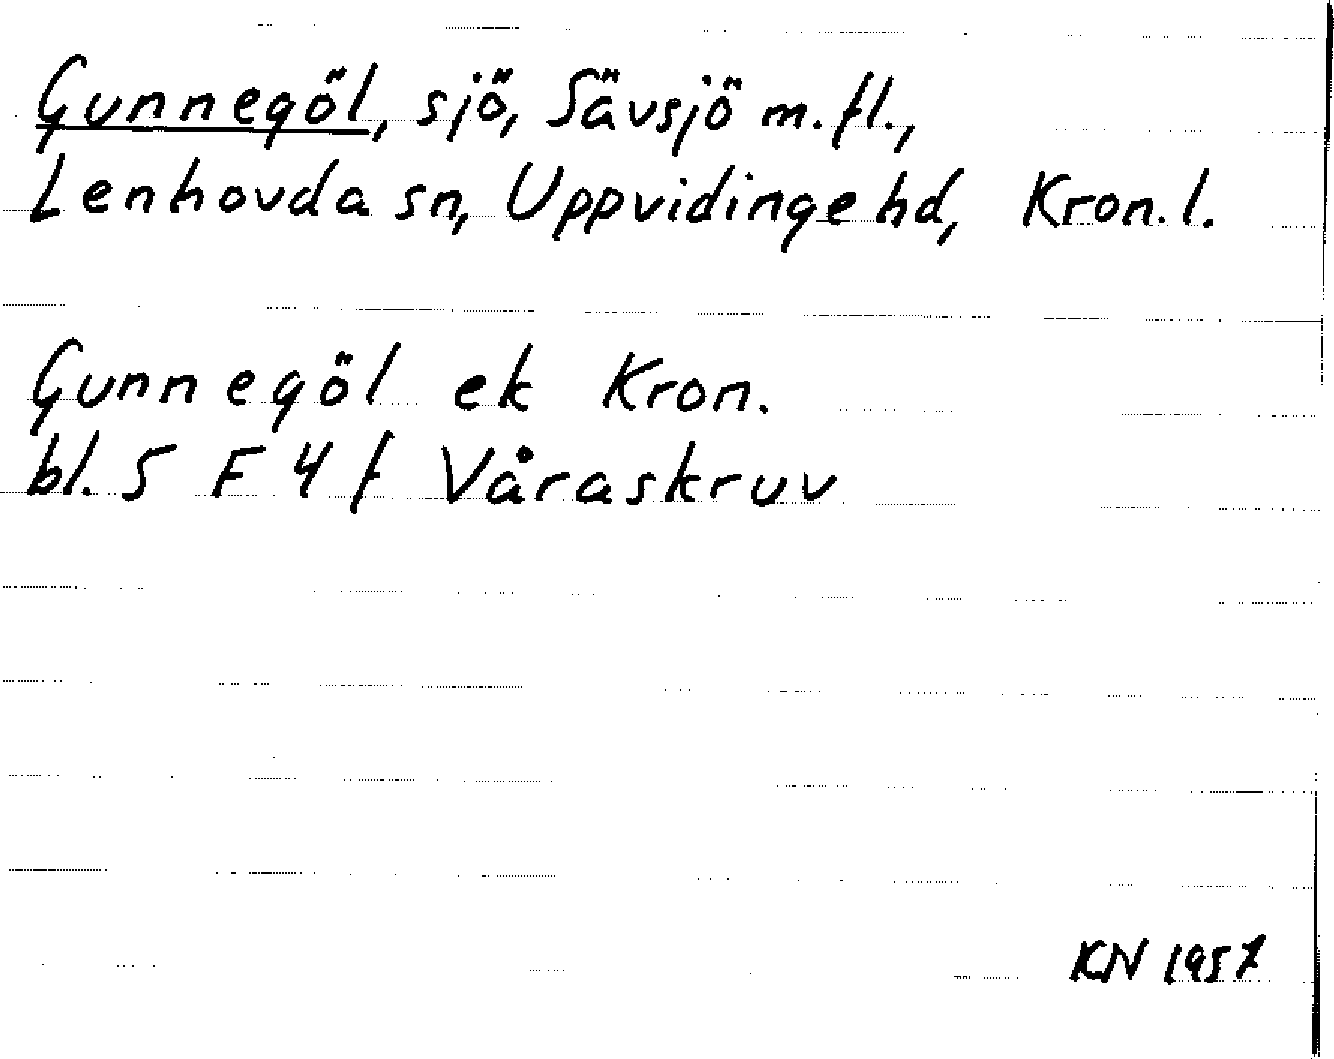 Gunnegöl, sjö, Sävsjö m.fl.,
Lenhovda sn, Uppvidinge hd, Kron.l.
Gunnegöl ek Kron.
bl. 5 F 4 f Våraskruv
KN 1957